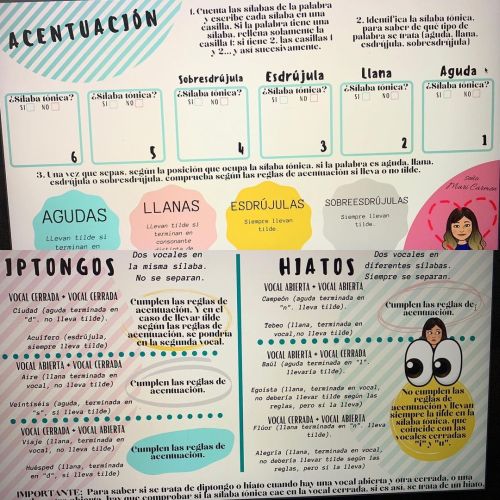 ACENTUACIÓN
1. Cuenta las sílabas de la palabra
y escribe cada sílaba en una
casilla. Si la palabra tiene una
sílaba, rellena solamente la
casilla 1; si tiene 2, las casillas 1
y 2... y así sucesivamente.
2. Identifica la sílaba tónica,
para saber de qué tipo de
palabra se trata (aguda, llana,
esdrújula, sobresdrújula)
Sobresdrújula Esdrújula Llana Aguda
¿Sílaba tónica? ¿Sílaba tónica? ¿Sílaba tónica? ¿Sílaba tónica? ¿Sílaba tónica? ¿Sílaba tónica?
SI NO SI NO SI NO SI NO SI NO SI NO
6 5 4 3 2 1
3. Una vez que sepas, según la posición que ocupa la sílaba tónica, si la palabra es aguda, llana,
esdrújula o sobresdrújula, comprueba según las reglas de acentuación si lleva o no tilde.
AGUDAS
Llevan tilde si
terminan en
LLANAS
Llevan tilde si
terminan en
consonante
distinta de
ESDRÚJULAS
Siempre llevan
tilde.
SOBREESDRÚJULAS
Siempre llevan
tilde.
seño
Mari Carmen
IPTONGOS
Dos vocales en
la misma sílaba.
No se separan.
VOCAL CERRADA + VOCAL CERRADA
Ciudad (aguda terminada en
"d", no lleva tilde).
Acuífero (esdrújula,
siempre lleva tilde)
Cumplen las reglas de
acentuación. Y en el
caso de llevar tilde
según las reglas de
acentuación, se pondría
en la segunda vocal.
VOCAL ABIERTA + VOCAL CERRADA
Aire (llana terminada en
vocal, no lleva tilde)
Veintiséis (aguda, terminada en
"s", sí lleva tilde)
Cumplen las reglas de
acentuación.
VOCAL CERRADA + VOCAL ABIERTA
Viaje (llana, terminada en
vocal, no lleva tilde)
Huésped (llana, terminada en
"d", sí lleva tilde)
Cumplen las reglas de
acentuación.
HIATOS
Dos vocales en
diferentes sílabas.
Siempre se separan.
VOCAL ABIERTA + VOCAL ABIERTA
Campeón (aguda terminada en
"n". llevan tilde).
Tebeo (llana, terminada en
vocal, no lleva tilde)
Cumplen las reglas de
acentuación.
VOCAL ABIERTA + VOCAL CERRADA
Baúl (aguda terminada en "l".
llevaría tilde).
Egoísta (llana, terminada en vocal,
no debería llevar tilde según las
reglas, pero sí la lleva)
VOCAL CERRADA + VOCAL ABIERTA
Flúor (llana terminada en "n".
no llevan tilde).
Alegría (llana, terminada en vocal
no debería llevar tilde según las
reglas, pero sí la lleva)
No cumplen las
reglas de
acentuación y llevan
siempre la tilde en la
sílaba tónica, que
coincide con las
vocales cerradas
"i" y "u".
IMPORTANTE: Para saber si se trata de diptongo o hiato cuando hay una vocal abierta y otra cerrada, o una
hay que comprobar si la sílaba tónica cae en la vocal cerrada, si es así, se trata de un hiato.